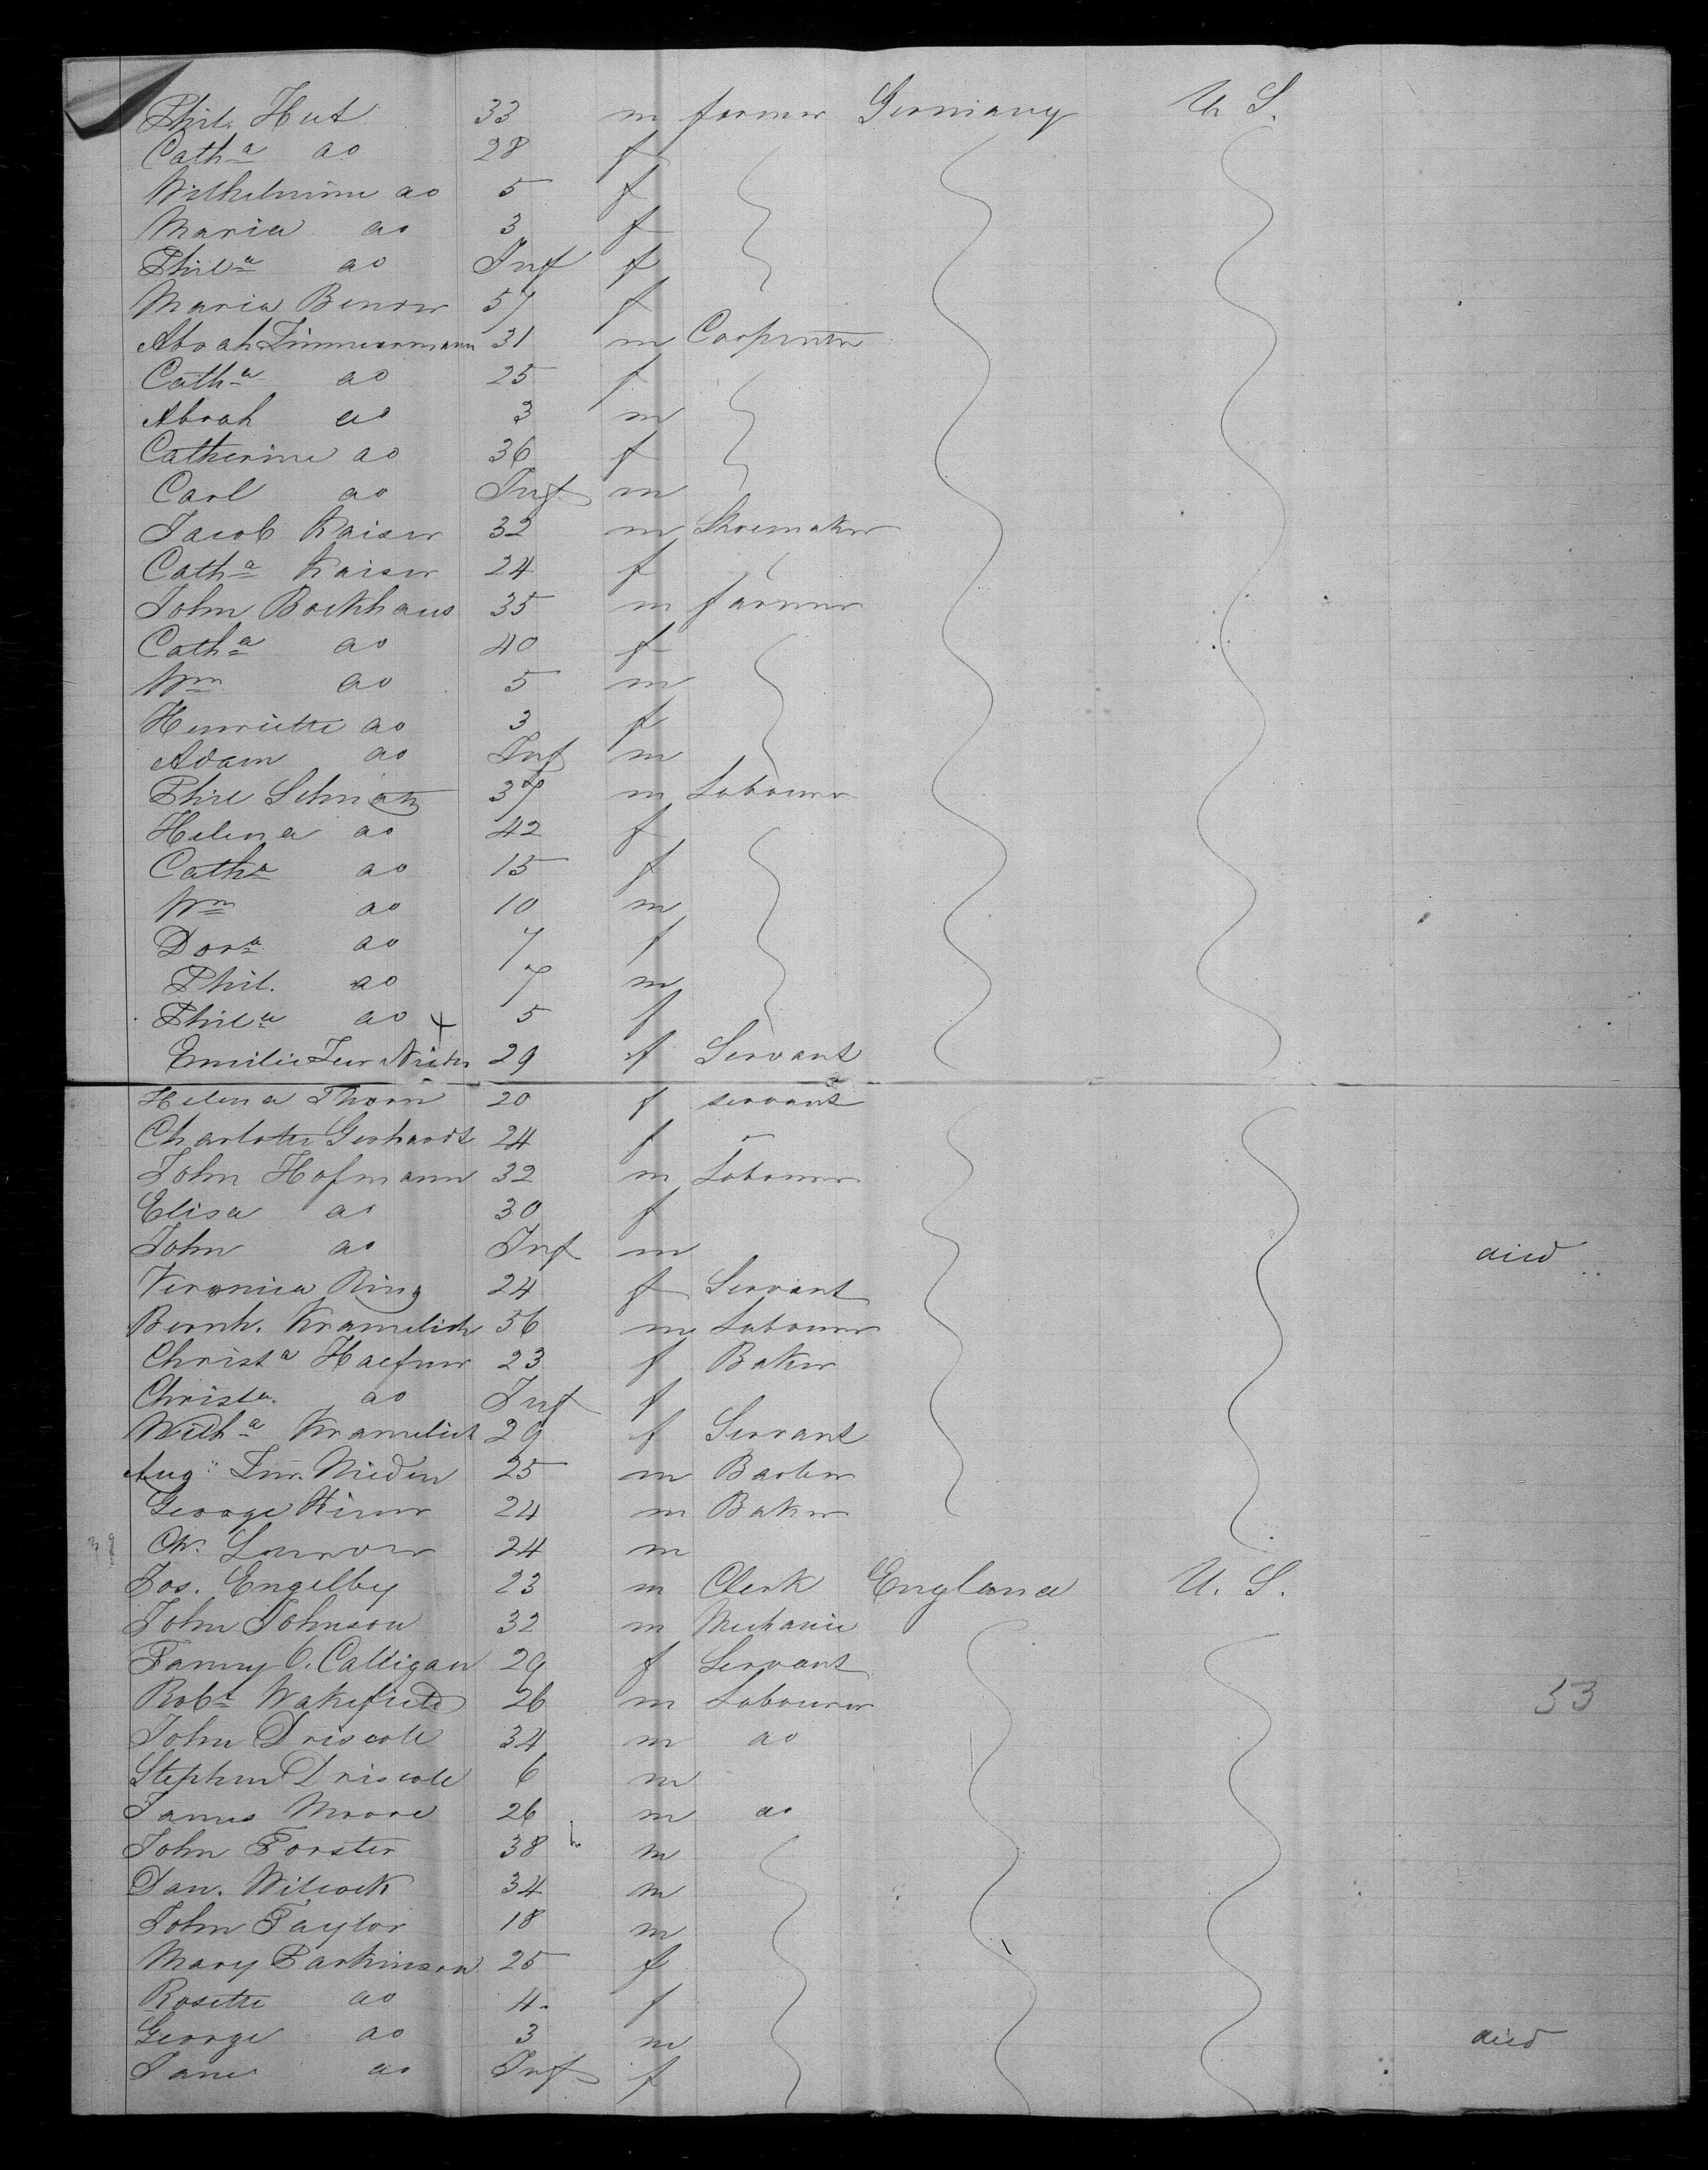 Phil. Hut 33 m farmer Germany U S.
Cath a do 28 f
Wilhelmine do 5 f
Maria do 3 f
Phil a do Inf f
Maria Benner 57 f
Abrah Zimmermann 31 m Carpenter
Cath a do 25 f
Abrah do 3 m
Catherine do 36 f
Carl do Inf m
Jacob Kaiser 32 m Shoemaker
Cath a Kaiser 24 f
John Bockhaus 35 m farmer
Cath a do 40 f
Wm do 5 m
Henriette do 3 f
Adam do Inf m
Phil Schmatz 37 m Labourer
Helena do 42 f
Cath a do 15 f
Wm do 10 m
Dor a do 7 f
Phil. do 7 m
Phil a do + 5 f
Emilie Zur Nieden 29 f Servant
Helena Thorn 20 f servant
Charlotte Gerhardt 24 f -
John Hofmann 32 m Labourer
Elisa do 30 f
John do Inf m died
Veronica Ring 24 f Servant
Bernh. Kramelich 56 m Labourer
Christ a Haefner 23 f Baker
Christ a do Inf f
Wilh a Kramelich 29 f Servant
Aug: Zur Nieden 25 m Barber
George 24 m Baker
Ch. 24 m
Jos. Engelby 23 m Clerk England U. S.
John Johnson 32 m Mechanic
Fanny O. Calligan 29 f Servant
Robt Wakefield 26 m Labourer 53
John Driscole 34 m do
Stephen Driscole 6 m
James Moore 26 m do
John Forster 38 m
Dan. Wilcock 34 m
John Taylor 18 m
Mary Parkinson 25 f
Rosette do 4. f
George do 3 m died
Jane do Inf f